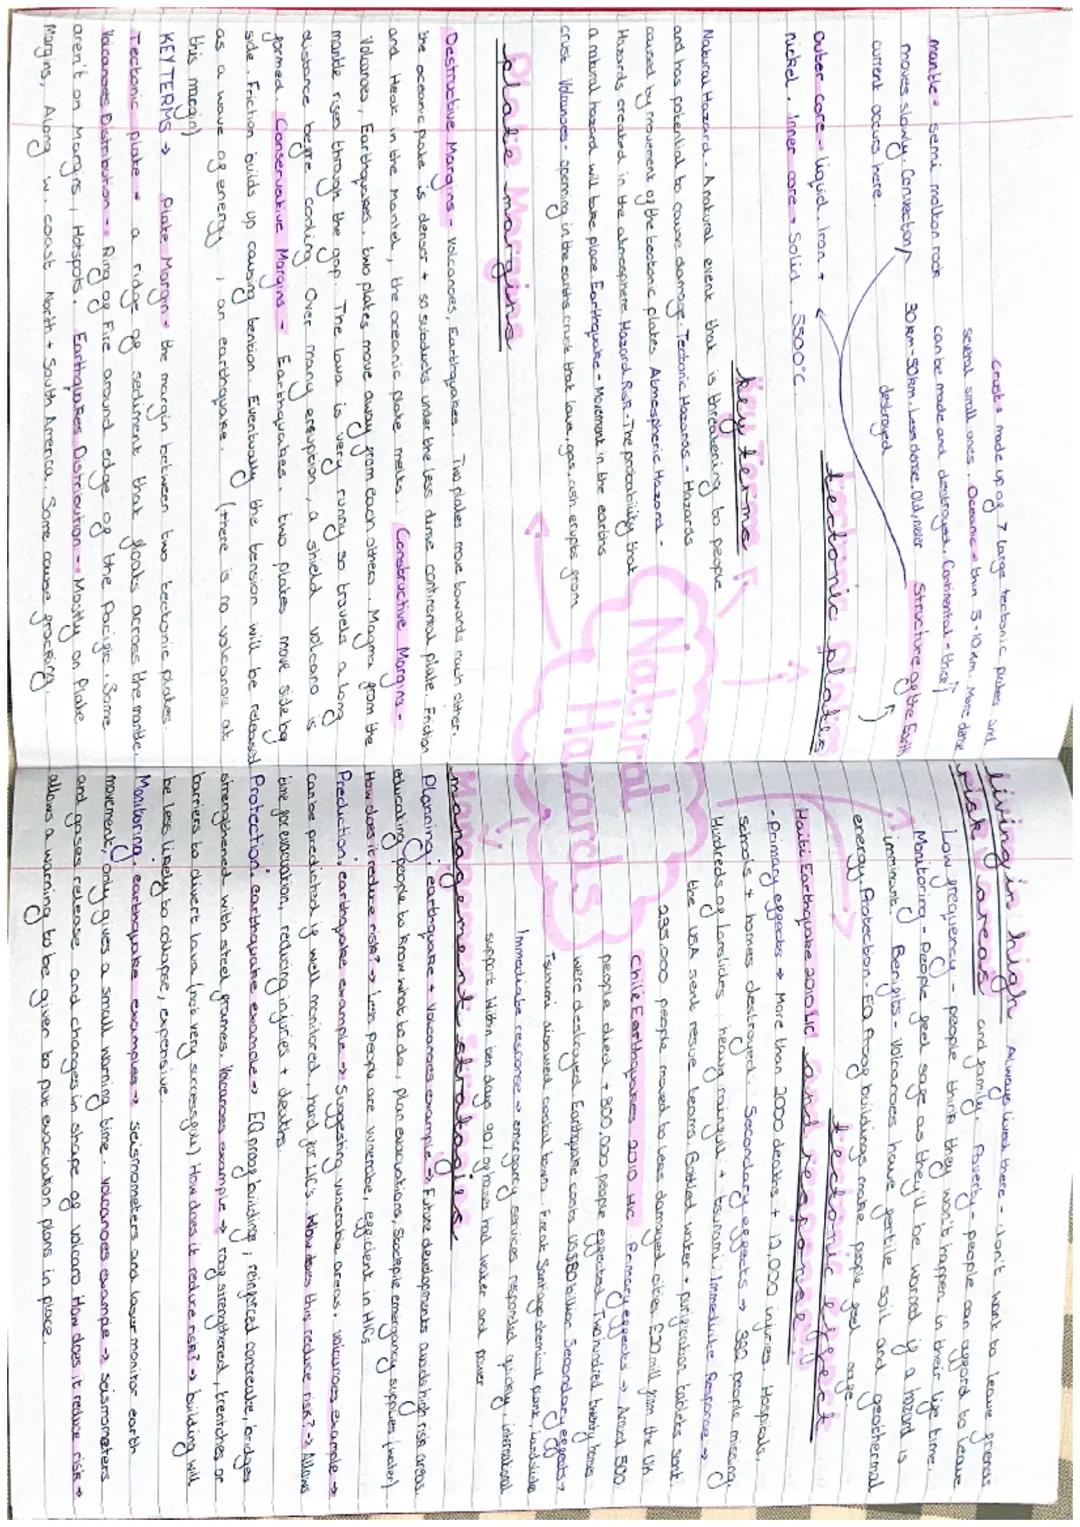 Natural Hazards
tectonic plates
Structure of the Earth
crust = made up of 7 large tectonic plates and
several small ones. Oceanic = thin 5-10km. More dense
can be made and destroyed. Continental = thick
30km-50km. Less dense. Old, never
destroyed
mantle = semi molton rock
moves slowly. Convection
current occurs here.
Outer core = liquid. Iron +
nickel, inner core = Solid. 5500°C.
key terms
Natural Hazard - A natural event that is threatening to people
and has potential to cause damage. Tectonic Hazards - Hazards
caused by movement of the tectonic plates. Atmospheric Hazard -
Hazards created in the atmosphere Hazard Risk - The probability that
a natural hazard will take place. Earthquake - Movement in the earths
crust Volcanoes - opening in the earths crust that lava, gas, ash erupts from
Plate margins
Destructive Margins - Volcanoes, Earthquakes. Two plates move towards each other.
the oceanic plate is denser + so subducts under the less dense continental plate. Friction
and Heat in the mantel, the oceanic plate melts. Constructive Margins -
Volcanoes, Earthquakes. two plates move away from each others. Magma from the
mantle rises through the gap. The lava is very runny so travels a long
distance before cooling. Over many eruption, a shield volcano is
formed. Conservative Margins - Earthquakes. two plates move side by
side. Friction builds up causing tention. Eventually the tension will be released
as a wave of energy, an earthquake. (there is no volcanoe at
this margin)
KEY TERMS → Plate Margin = the margin between two tectonic plates.
Tectonic plate = a ridge of sediment that floats across the mantle.
Volcanoes Distribution - Ring of Fire around edge of the Pacific. Some
aren't on Margins, Hotspots. Earthquakes Distribution - Mostly on Plate
Margins, Along w. coast North + South America. Some cause fracking.
living in high
risk areas
Always lived there - don't want to leave friends
and family. Poverty - people can afford to leave
Low frequency - people think they won't happen in their life time.
Monitoring - people feel safe as they'll be warned if a hazard is
imminant. Benifits - Volcanoes have fertile soil and geothermal
energy. Protection - EQ Proof buildings make people feel safe.
tectonic effect
and responses
Haiti Earthquake 2010 LIC
- Primary effects → More than 2000 deaths + 12,000 injuries. Hospitals,
Schools + homes destroyed. Secondary effects → 380 people missing
Hundreds of landslides, heavy rainfall + tsunami. Immediate Response →
the USA sent rescue teams. Bottled water + purification tablets sent
235,000 people moved to less damaged cities, £20 mill from the UK
Chile Earthquakes 2010 HIC Primary effects → Around 500
people died + 800,000 people effected. Two hundred twenty homes
were destroyed. Earthquake costs US$30 billion Secondary effects →
Immediate response → emergancy services responded quickly, international
support. Within ten days 90% of homes had water and power
management strategies
Planning: earthquake + Volcanoes example → Future developments avoids high risk areas
educating people to know what to do, plan evacuations, Stockpile emergancy supplies (water)
How does it reduce risk? → Less people are vunerable, efficient in HICs
Prediction: earthquake example → Suggesting vunerable areas. Volcanoes example →
can be predicted if well monitored, hard for LICs. How does this reduce risk? → Allows
time for evacuation, reducing injuries + deaths.
Protection: earthquake example → EQ proof buildings, reinforced concreate, bridges
strengthened with steel frames. Volcanoes example → roof strengthened, trentches or
barriers to divert lava (not very successful) How does it reduce risk? → building will
be less likely to collapse, expensive.
Monitoring: earthquake examples → Seismometers and laser monitor earth
movement, only gives a small warning time. Volcanoes example → seismometers
and gases release and changes in shape of volcano How does it reduce risk →
allows a warning to be given to put evacuation plans in place.